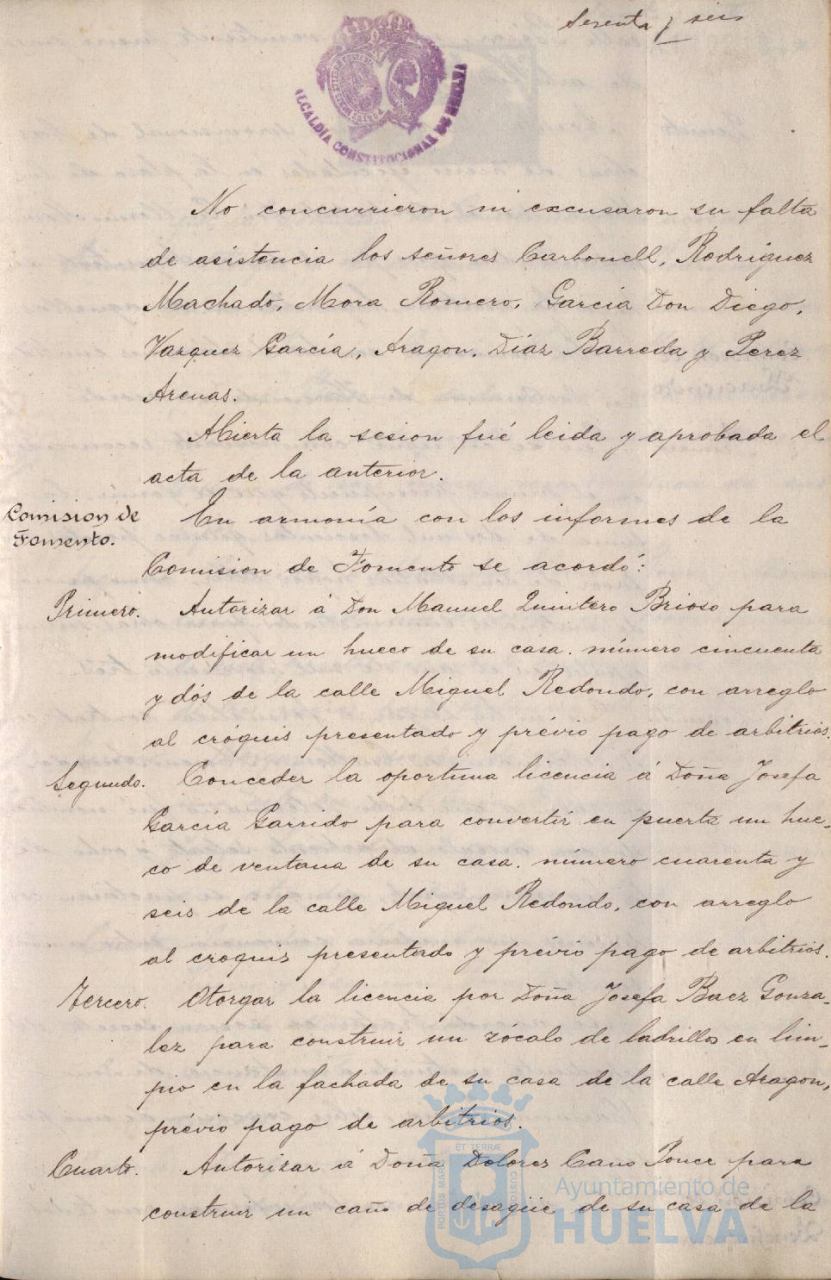 Sesenta y seis
ALCALDIA CONSTITUCIONAL DE HUELVA
No concurrieron ni excusaron su falta
de asistencia los señores Carbonell, Rodriguez
Machado, Mora Romero, Garcia Don Diego,
Vazquez García, Aragon, Diaz Barreda y Perez
Arenas.
Abierta la sesion fué leida y aprobada el
acta de la anterior.
Comision de
Fomento.
En armonía con los informes de la
Comision de Fomento se acordó:
Primero. Autorizar á Don Manuel Quintero Brioso para
modificar un hueco de su casa. número cincuenta
y dós de la calle Miguel Redondo, con arreglo
al cróquis presentado y prévio pago de arbitrios.
Segundo. Conceder la oportuna licencia á Doña Josefa
García Garrido para convertir en puerta un hue-
co de ventana de su casa. número cuarenta y
seis de la calle Miguel Redondo, con arreglo
al croquis presentado y prévio pago de arbitrios.
Tercero. Otorgar la licencia por Doña Josefa Baez Gonza-
lez para construir un zócalo de ladrillos en lim-
pio en la fachada de su casa de la calle Aragon,
prévio pago de arbitrios.
Cuarto. Autorizar á Doña Dolores Cano Ponce para
construir un caño de desagüe de su casa de la
Ayuntamiento de
HUELVA